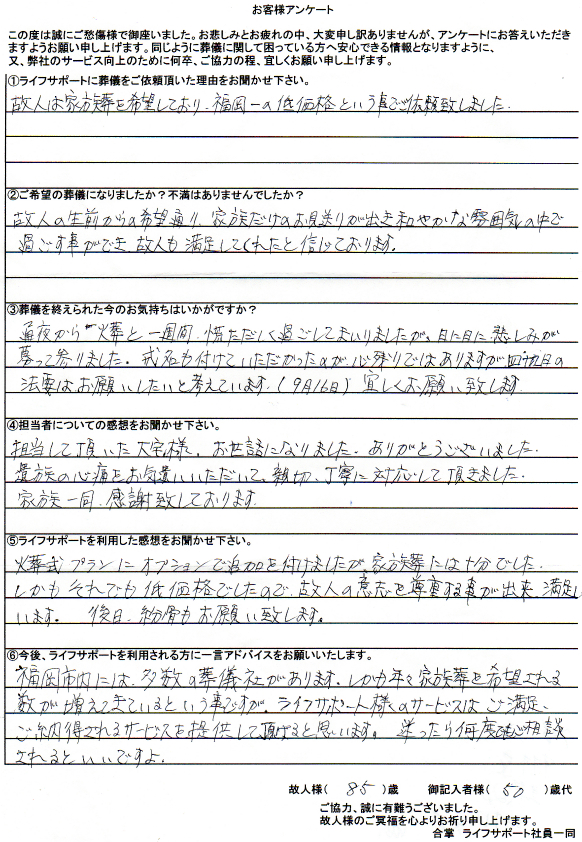 お客様アンケート
この度は誠にご愁傷様で御座いました。お悲しみとお疲れの中、大変申し訳ありませんが、アンケートにお答えいただき
ますようお願い申し上げます。同じように葬儀に関して困っている方へ安心できる情報となりますように、
又、弊社のサービス向上のために何卒、ご協力の程、宜しくお願い申し上げます。
①ライフサポートに葬儀をご依頼頂いた理由をお聞かせ下さい。
故人は家族葬を希望しており、福岡一の低価格という事でご依頼致しました。
②ご希望の葬儀になりましたか？不満はありませんでしたか？
故人の生前からの希望通り、家族だけのお見送りが出来和やかな雰囲気の中で
過ごす事ができ、故人も満足してくれたと信じております。
③葬儀を終えられた今のお気持ちはいかがですか？
通夜から火葬と一週間、慌ただしく過ごしてまいりましたが、日に日に悲しみが
募って参りました。戒名も付けていただかったのが、心残りではありますが四十九日の
法要はお願いしたいと考えています。(9月16日) 宜しくお願い致します
④担当者についての感想をお聞かせ下さい。
担当して頂いた大宅様、お世話になりました。ありがとうございました。
遺族の心痛をお気遣いいただいて、親切、丁寧に対応して頂きました。
家族一同、感謝致しております。
⑤ライフサポートを利用した感想をお聞かせ下さい。
火葬式プランにオプションで追加を付けましたが、家族葬には十分でした。
しかもそれでも低価格でしたので、故人の意志を尊重する事が出来、満足し
います。 後日、紛骨もお願い致します。
⑥今後、ライフサポートを利用される方に一言アドバイスをお願いいたします。
福岡市内には、多数の葬儀社があります。しかも年々家族葬を希望される
数が増えてきているという事ですが、ライフサポート様のサービスはご満足、
ご納得されるサービスを提供して頂けると思います。 迷ったら何度もご相談
されるといいですよ。
故人様( 85 )歳 御記入者様( 50 )歳代
ご協力、誠に有難うございました。
故人様のご冥福を心よりお祈り申し上げます。
合掌 ライフサポート社員一同